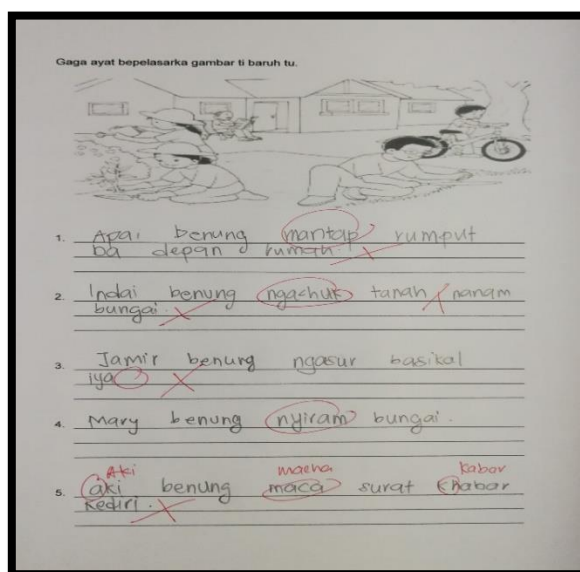 Gaga ayat bepelasarka gambar ti baruh tu.
1. Apai benung mantap rumput
ba depan rumah.
2. Indai benung ngachuk tanah nanam
bungai.
3. Jamir benung ngasur basikal
iya
4. Mary benung nyiram bungai.
Aki macha kabar
5. aki benung maca surat khabar
kediri.